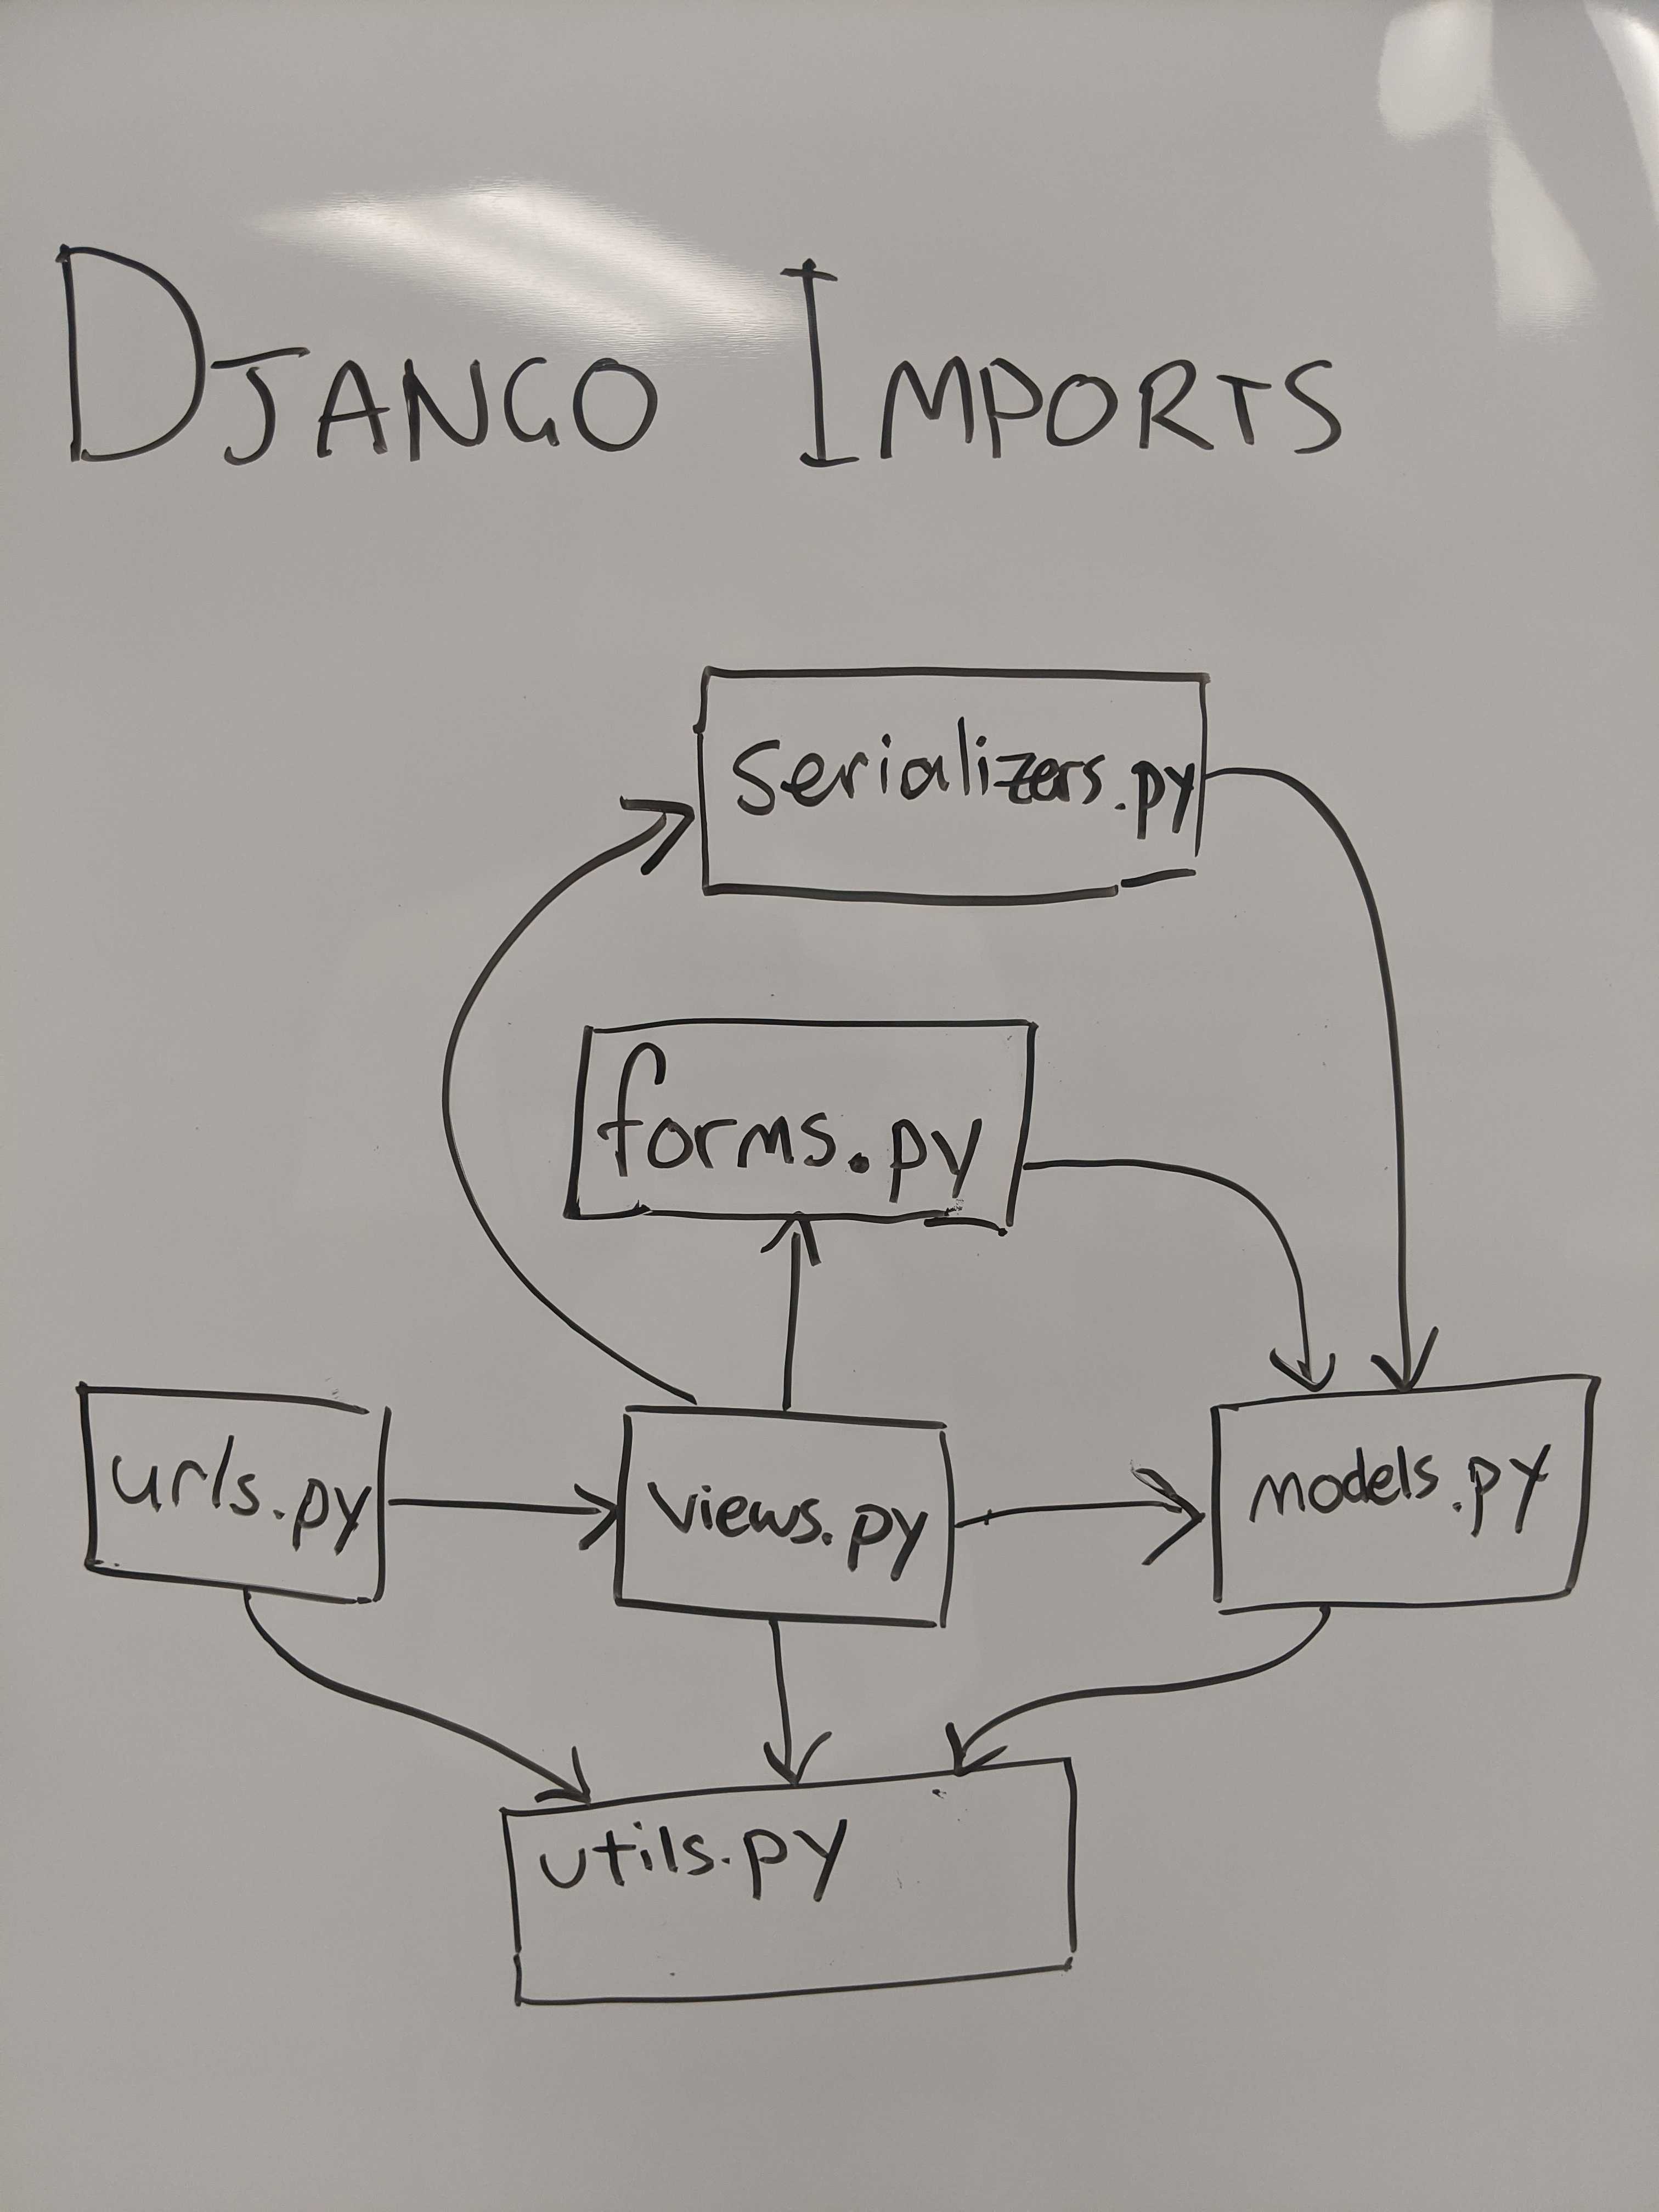 DJANGO IMPORTS
serializers.py
forms.py
urls.py
views.py
models.py
utils.py